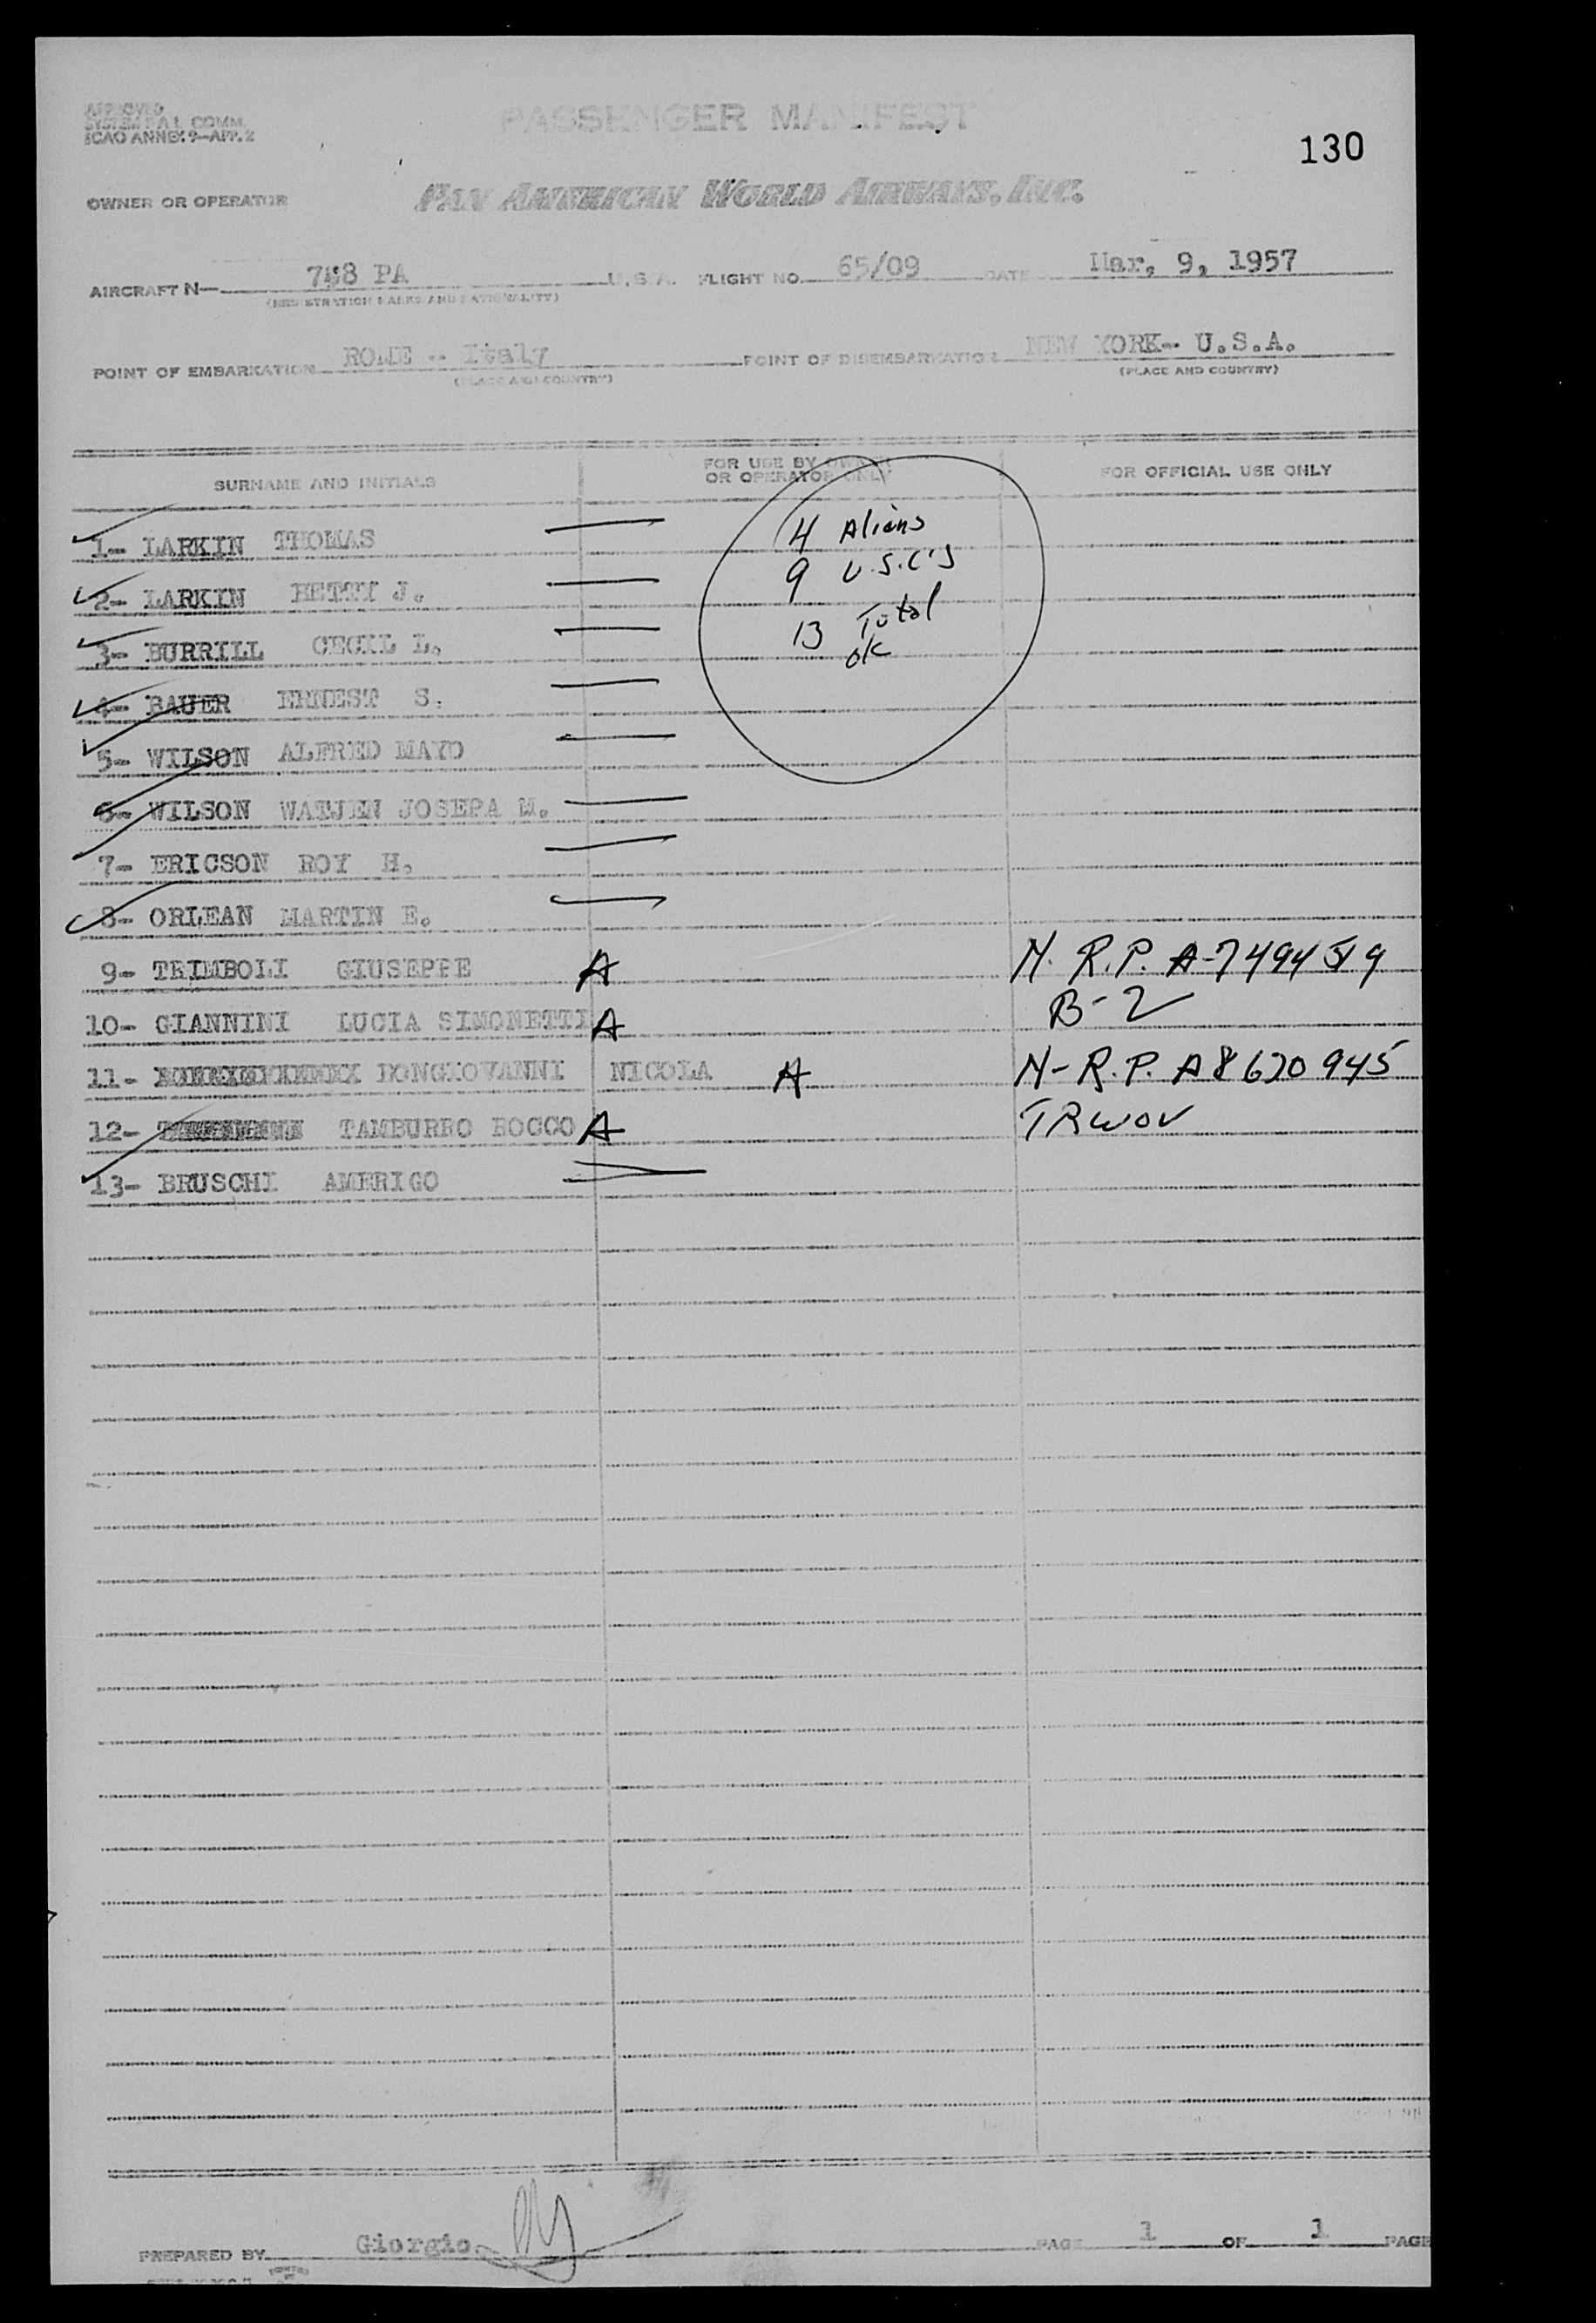 APPROVED
SYSTEM F A L COMM.
ICAO ANNEX 9—APP. 2
PASSENGER MANIFEST
130
OWNER OR OPERATOR PAN AMERICAN WORLD AIRWAYS, INC.
AIRCRAFT N— PA U.S.A. FLIGHT NO. 65/09 DATE Mar, 9, 1957
(REGISTRATION MARKS AND NATIONALITY)
POINT OF EMBARKATION ROME -- Italy POINT OF DISEMBARKATION NEW YORK-- U.S.A.
(PLACE AND COUNTRY) (PLACE AND COUNTRY)
SURNAME AND INITIALS FOR USE BY OWNER OR OPERATOR ONLY FOR OFFICIAL USE ONLY
1- LARKIN THOMAS 4 Aliens
2- LARKIN BETTY J. 9 U.S.C'S
3- BURRILL CECIL L. 13 Total
OK
4- BAUER ERNEST S.
5- WILSON ALFRED MAYO
6- WILSON WATJEN JOSEPA M.
7- ERICSON ROY H.
8- ORLEAN MARTIN E.
9- TRIMBOLI GIUSEPPE A N. R.P.
10- GIANNINI LUCIA SIMONETTI A B-2
11- BONGIOVANNI NICOLA A N-R.P. A8620945
12- TAMBURRO ROCCO A TRWOV
13- BRUSCHI AMERIGO
PREPARED BY Giorgio PAGE 1 OF 1 PAGE